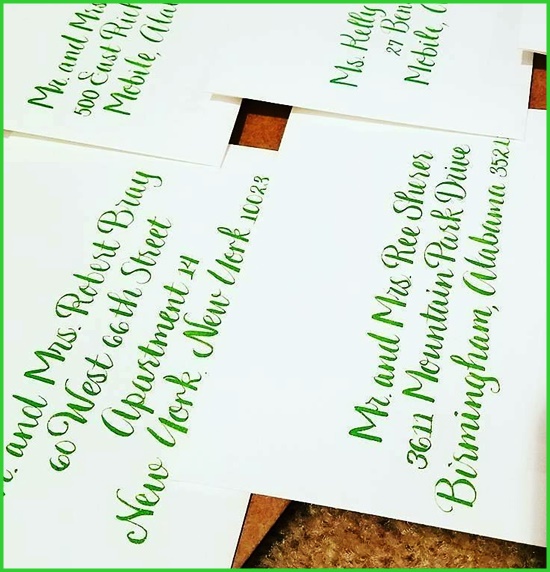 Mr. and Mrs
500 East
Mobile,
Ms. Kelly
27
Mobile,
and Mrs. Robert Bray
60 West 66th Street
Apartment 14
New York New York 10023
Mr. and Mrs. Ree Shurer
3611 Mountain Park Drive
Birmingham, Alabama